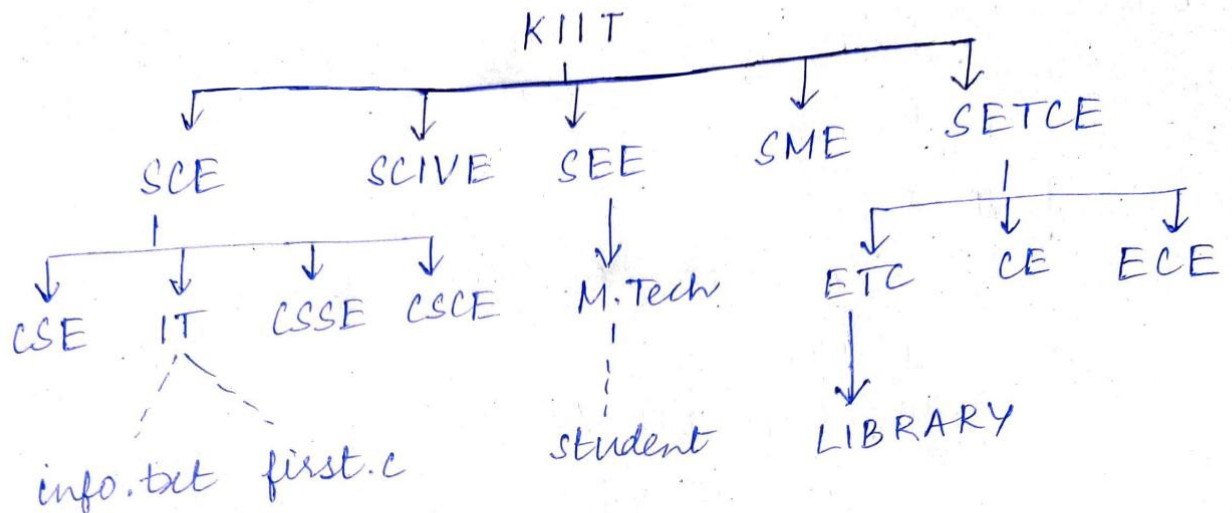 KIIT
SCE SCIVE SEE SME SETCE
CSE IT CSSE CSCE M.Tech ETC CE ECE
info.txt first.c student LIBRARY